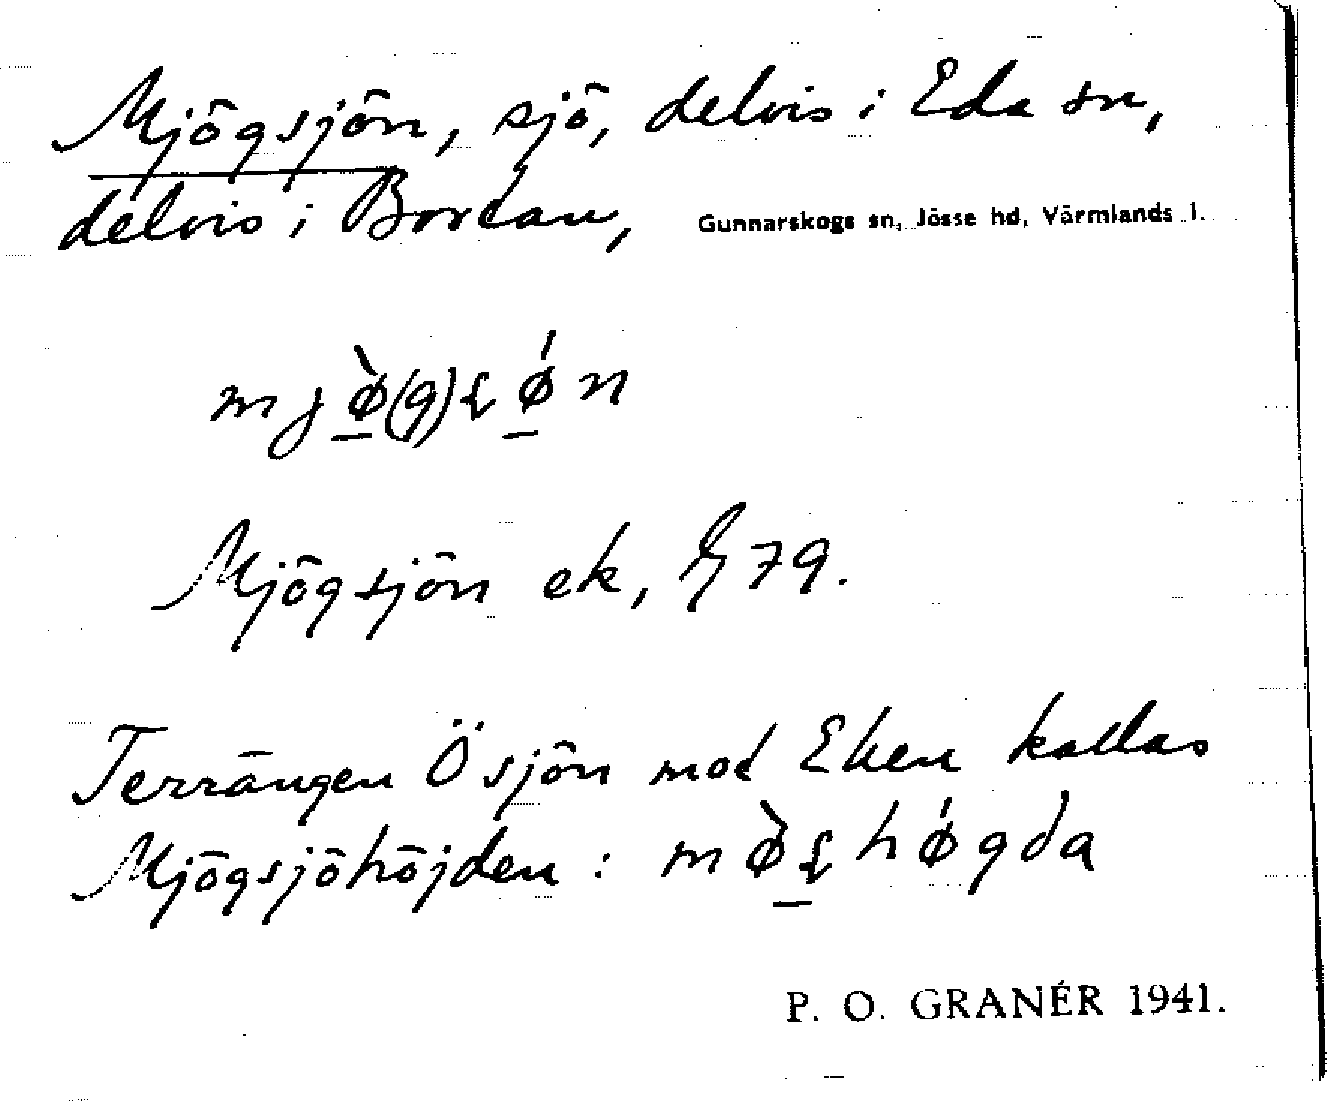 Mjögsjön, sjö, delvis i Eda sn,
delvis i Bortan, Gunnarskogs sn, Jösse hd, Värmlands l.
mjø̀(g)ʂǿn
Mjögsjön ek, 79.
Terrängen Ö sjön mot Eken kallas
Mjögsjöhöjden : mø̀ʂhǿgda
P. O. GRANÉR 1941.